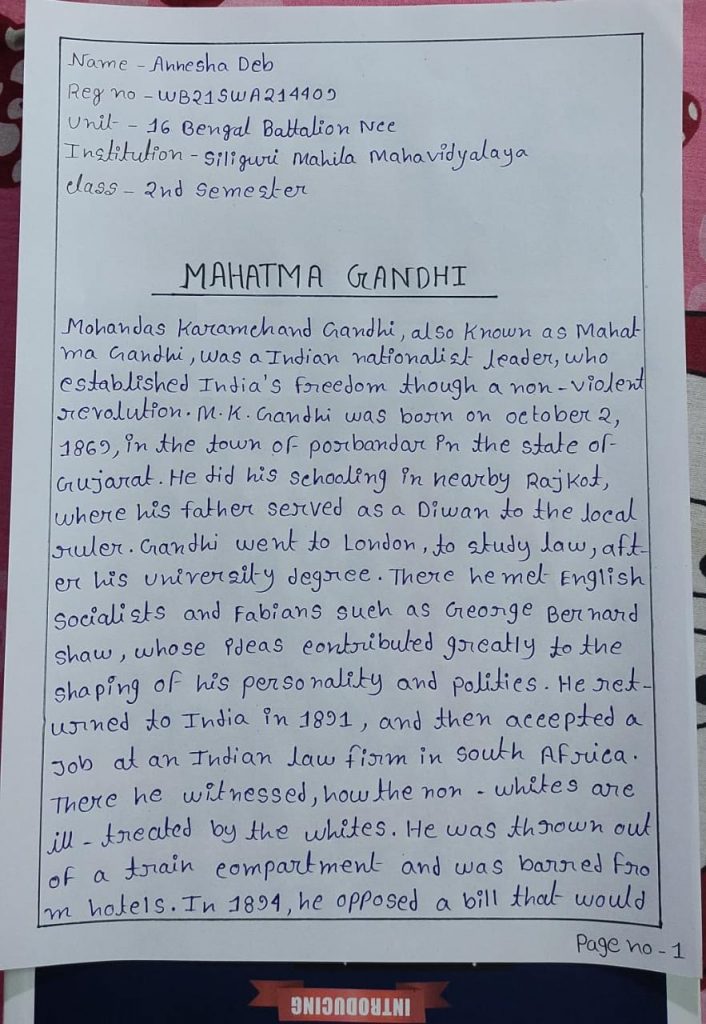 Name - Annesha Deb
Reg no - WB21SWA214409
Unit - 16 Bengal Battalion Ncc
Institution - Siliguri Mahila Mahavidyalaya
Class - 2nd Semester
MAHATMA GANDHI
Mohandas Karamchand Gandhi, also known as Mahat
ma Gandhi, was a Indian nationalist leader, who
established India's freedom though a non-violent
revolution. M.K. Gandhi was born on october 2,
1869, in the town of porbandar in the state of
Gujarat. He did his schooling in nearby Rajkot,
where his father served as a Diwan to the local
ruler. Gandhi went to London, to study law, aft-
er his university degree. There he met English
Socialists and Fabians such as George Bernard
shaw, whose ideas contributed greatly to the
shaping of his personality and politics. He ret-
urned to India in 1891, and then accepted a
Job at an Indian law firm in South Africa.
There he witnessed, how the non - whites are
ill - treated by the whites. He was thrown out
of a train compartment and was barred fro
m hotels. In 1894, he opposed a bill that would
Page no - 1
INTRODUCING